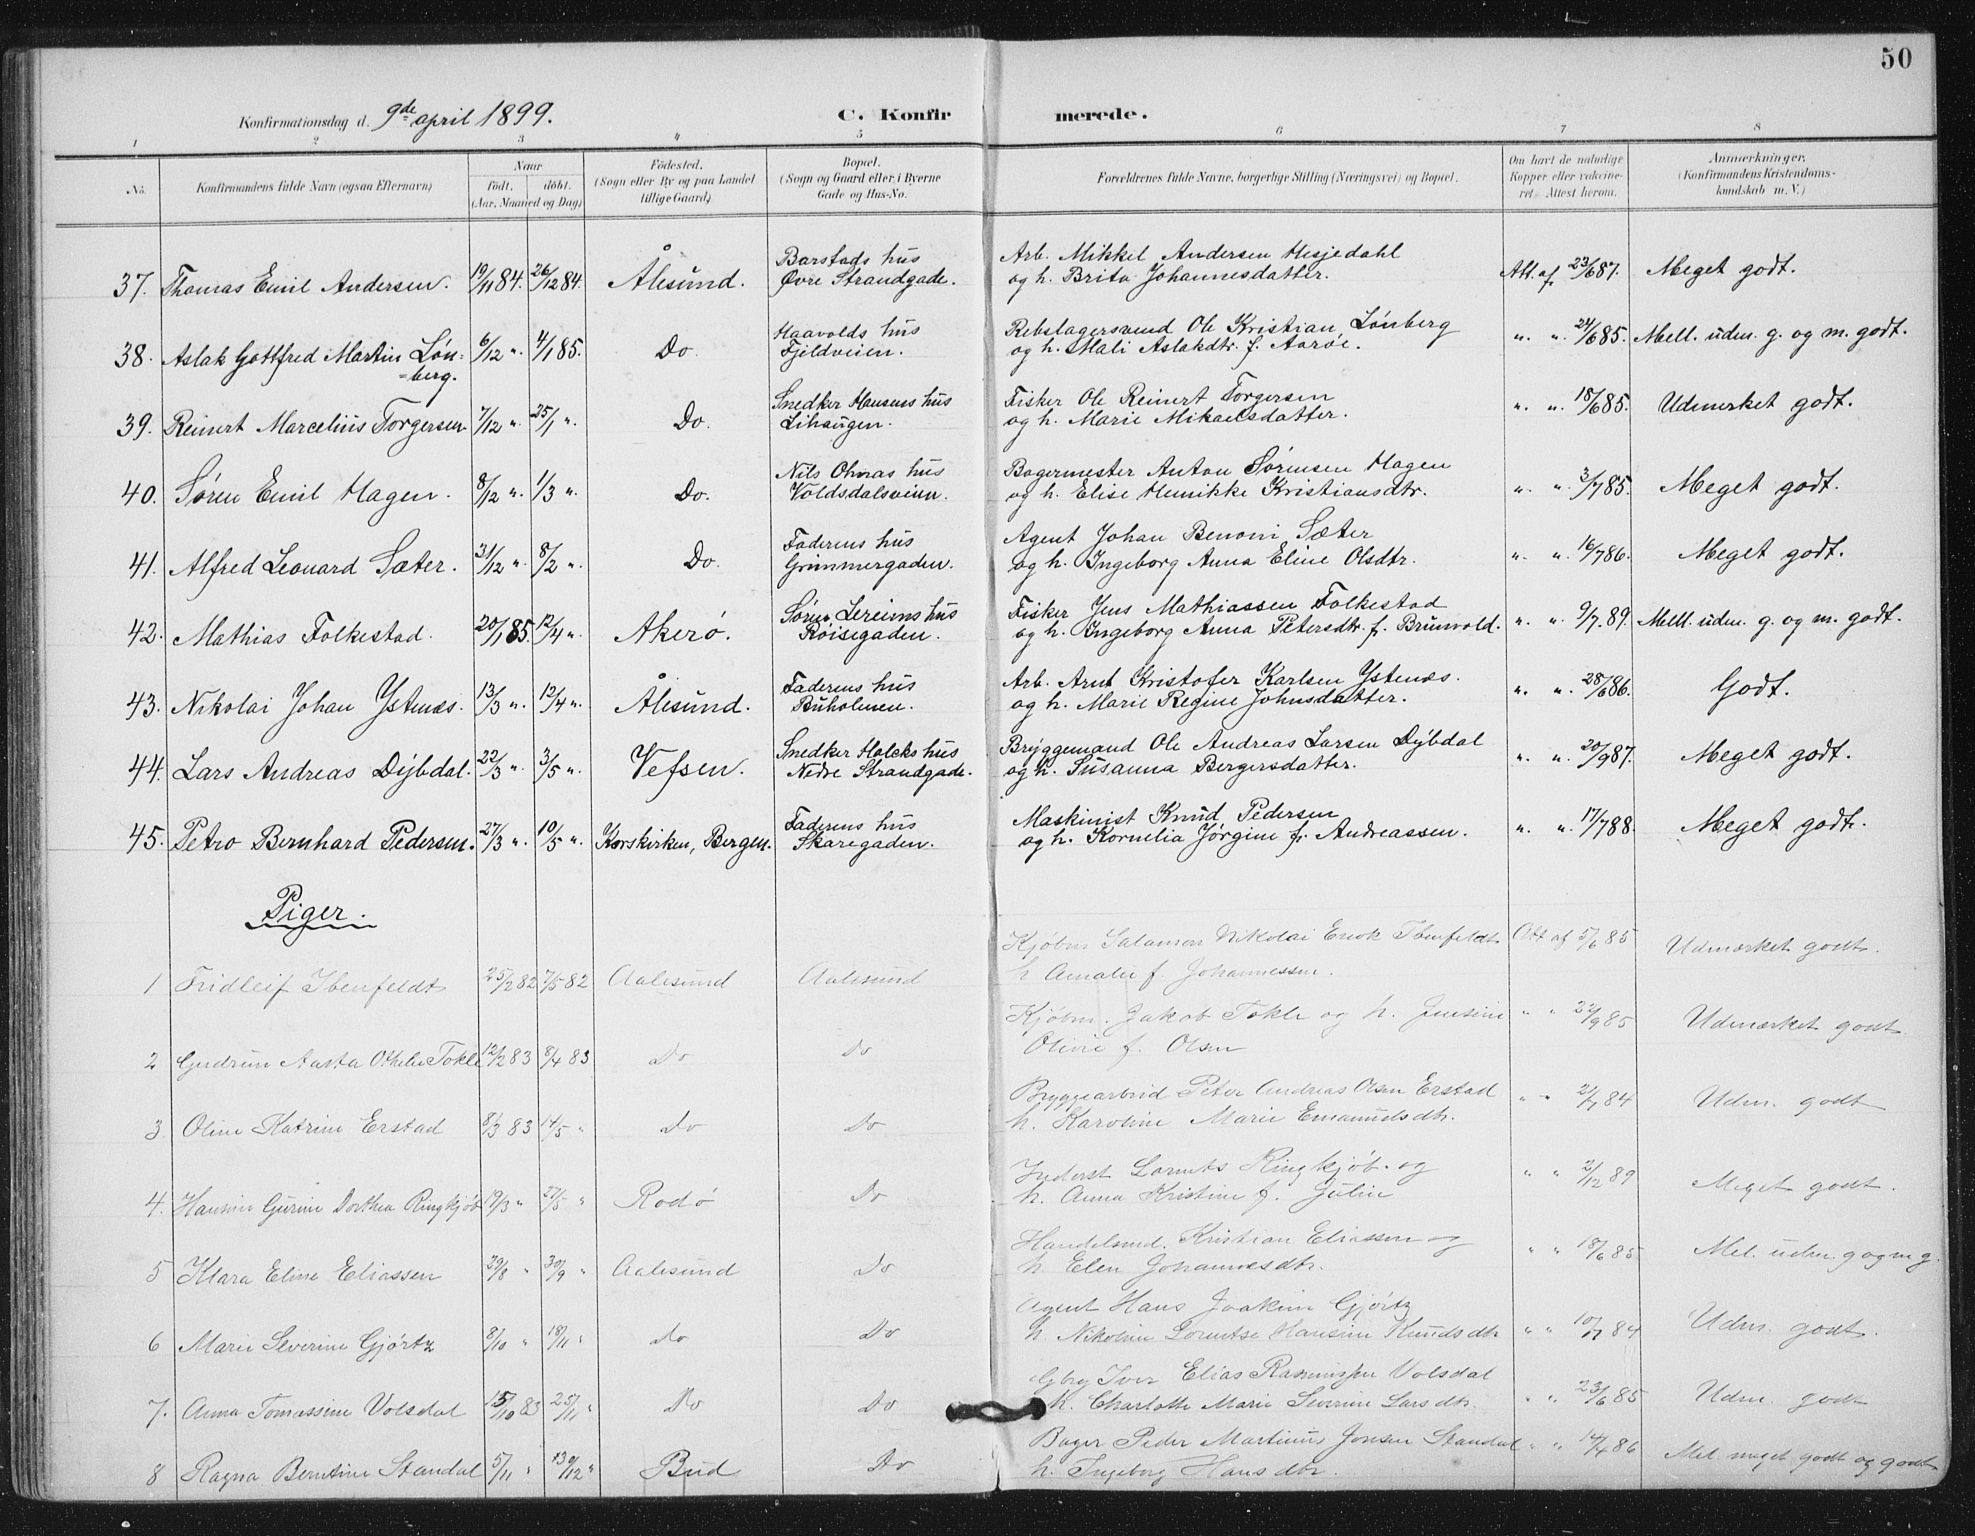 50
Konfirmationsdag d. 9de april 1899. C. Konfirmerede.
1 2 3 4 5 6 7 8
No. Konfirmandens fulde Navn (ogsaa Efternavn) Naar født. døbt. (Aar, Maaned og Dag) Fødested. (Sogn eller By og paa Landet tillige Gaard) Bopæl. (Sogn og Gaard eller i Byerne Gade og Hus-No. Forældrenes fulde Navne, borgerlige Stilling (Næringsvei) og Bopæl. Om havt de naturlige Kopper eller vakcineret. Attest herom. Anmærkninger. (Konfirmandens Kristendomskundskab m. V.)
37. Thomas Emil Andersen. 19/11 84. 26/12 84. Ålesund. Barstads hus Øvre Strandgade. Arb. Mikkel Andersen Hesjedahl og h. Brita Johannesdatter. Att. af 23/6 87. Meget godt.
38. Aslak Gottfred Martin Lønberg. 6/12 „ 4/1 85. Do. Haavolds hus Fjeldveien. Rebslagersvend Ole Kristian Lønberg og h. Mali Aslakdtr. f. Aarøe. „ „ 24/6 85. Mell. udm. g. og m. godt.
39. Reinert Marcelius Torgersen 7/12 „ 25/1 „ Do. Snedker Hansens hus Lihaugen. Fisker Ole Reinert Torgersen og h. Marie Mikaelsdatter. „ „ 18/6 85. Udmerket godt.
40. Søren Emil Hagen. 8/12 „ 1/3 „ Do. Nils Ohras hus Voldsdalsveien. Bagermester Anton Sørensen Hagen og h. Elise Henrikke Kristiansdtr. „ „ 3/7 85. Meget godt.
41. Alfred Leonard Sæter. 31/12 „ 8/2 „ Do. Faderens hus Grimmergaden. Agent Johan Benoni Sæter og h. Ingeborg Anna Eline Olsdtr. „ „ 16/7 86. Meget godt.
42. Mathias Folkestad. 20/1 85. 12/4 „ Akerø. Søren Lereims hus Røisegaden. Fisker Jens Mathiassen Folkestad og h. Ingeborg Anna Petersdtr. f. Brunvold. „ „ 9/7 89. Mell. udm. g. og m. godt.
43. Nikolai Johan Ystenæs. 13/3 „ 12/4 „ Ålesund. Faderens hus Buholmen. Arb. Arnt Kristofer Karlsen Ystenæs. og h. Marie Regine Johnsdatter. „ „ 28/6 86. Godt.
44. Lars Andreas Dybdal. 22/3 „ 3/5 „ Vefsen. Snedker Holcks hus Nedre Strandgade. Bryggemand Ole Andreas Larsen Dybdal og h. Susanna Bergersdatter. „ „ 20/9 87. Meget godt.
45. Petro Bernhard Pedersen. 27/3 „ 10/5 „ Korskirken, Bergen. Faderens hus Skaregaden. Maskinist Knud Pedersen og h. Kornelia Jørgine f. Andreassen. „ „ 17/7 88. Meget godt.
Piger.
1 Fridleif Ibenfeldt 25/2 82 7/5 82 Aalesund Aalesund Kjøbm Salamon Nikolai Enok Ibenfeldt h. Amalie f. Johannessen. Att af 5/6 85 Udmærket godt.
2 Gudrun Aasta Othelie Tokle 12/2 83 8/4 83 Do Do Kjøbm. Jakob Tokle og h. Jensine Olivie f. Olsen „ „ 22/9 85 Udmærket godt
3 Oline Katrine Erstad 8/3 83 14/5 „ Do Do Bryggearbeid Peter Andreas Olsen Erstad h. Karoline Marie Emanuelsdtr. „ „ 21/7 84 Udm. godt
4. Hansine Gurine Dorthea Ringkjøb 19/3 „ 27/5 „ Rodø Do Inderst Lorents Ringkjøb. og h. Anna Kristine f. Julin „ „ 2/12 89 Meget godt.
5 Klara Eline Eliassen 29/8 „ 30/9 „ Aalesund Do Handelsmd. Kristian Eliassen og h. Elen Johannesdtr. „ „ 18/6 85 Mel. udm. g og m g.
6 Marie Severine Gjørtz 8/10 „ 18/11 „ do Do Agent Hans Joakim Gjørtz h. Nikoline Lorentse Hansine Knudsdtr „ „ 10/7 84 Udm. godt.
7. Anna Tomassine Volsdal 15/10 83 25/11 „ Do Do Gbrg Iver Elias Rasmussen Volsdal h. Charlotte Marie Severine Larsdtr. „ „ 23/6 85 Udm. godt
8 Ragna Berntine Standal 5/11 „ 30/12 „ Bud Do Bager Peder Martinus Jonsen Standal h. Ingeborg Hansdtr. „ „ 14/4 86 Mel. meget godt og godt